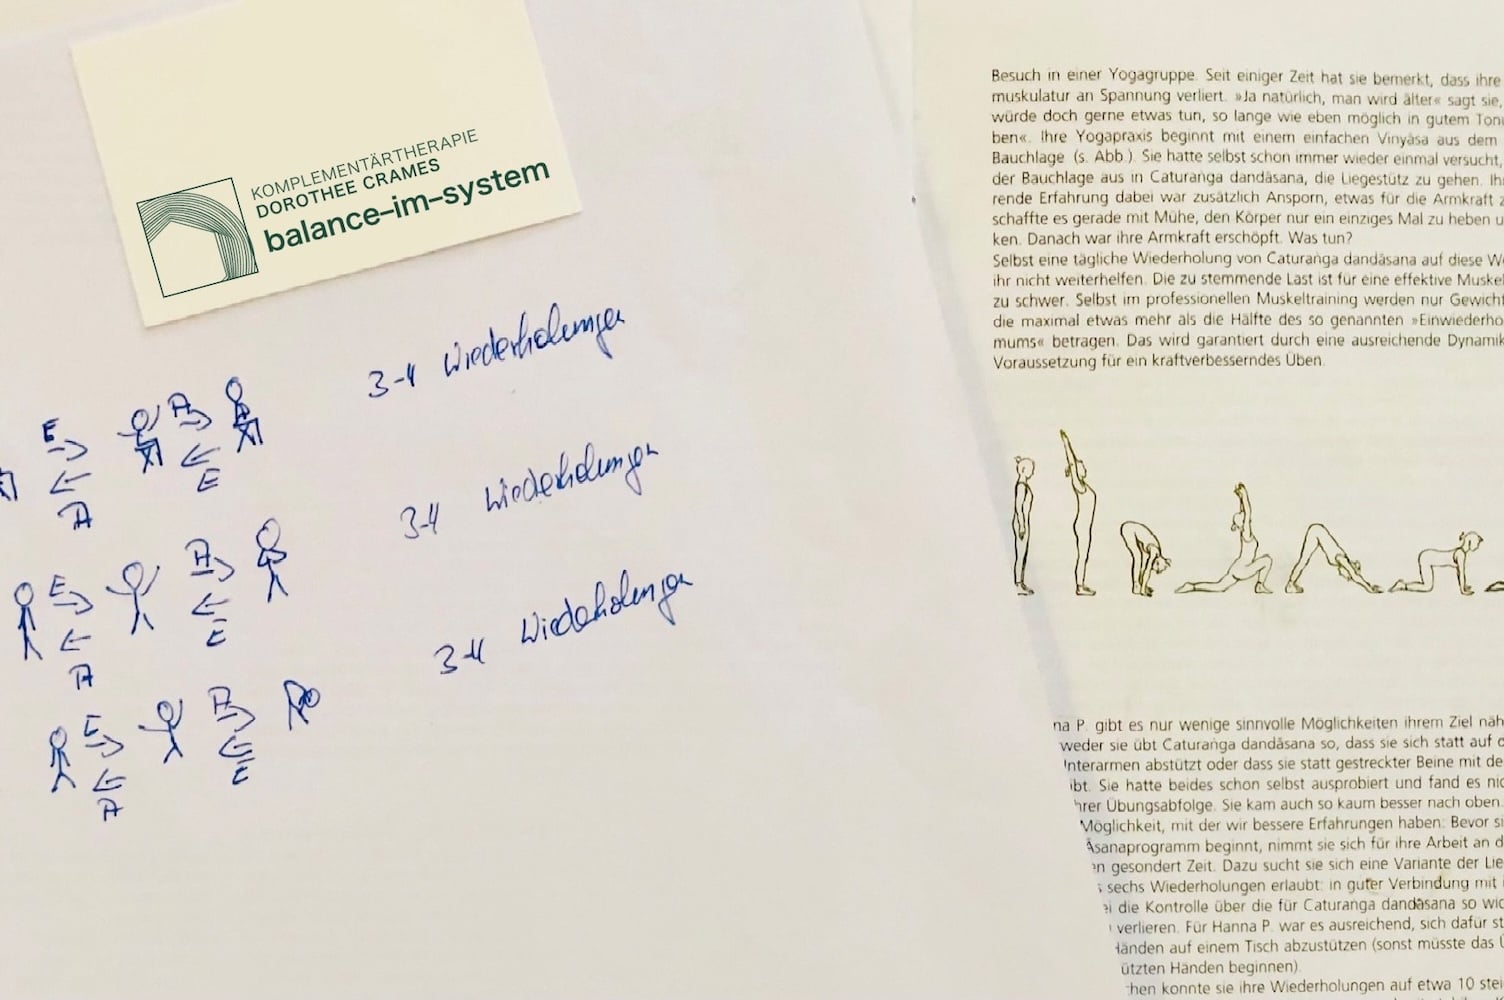 KOMPLEMENTÄRTHERAPIE
DOROTHEE CRAMES
balance–im–system
3-4 Wiederholungen
E
A
A
E
3-4 Wiederholungen
E
A
A
E
3-4 Wiederholungen
E
A
A
E
Besuch in einer Yogagruppe. Seit einiger Zeit hat sie bemerkt, dass ihre
muskulatur an Spannung verliert. »Ja natürlich, man wird älter« sagt sie,
würde doch gerne etwas tun, so lange wie eben möglich in gutem Tonu
ben«. Ihre Yogapraxis beginnt mit einem einfachen Vinyāsa aus dem
Bauchlage (s. Abb.). Sie hatte selbst schon immer wieder einmal versucht,
der Bauchlage aus in Caturaṅga daṇḍāsana, die Liegestütz zu gehen. Ih
rende Erfahrung dabei war zusätzlich Ansporn, etwas für die Armkraft z
schaffte es gerade mit Mühe, den Körper nur ein einziges Mal zu heben u
ken. Danach war ihre Armkraft erschöpft. Was tun?
Selbst eine tägliche Wiederholung von Caturaṅga daṇḍāsana auf diese W
ihr nicht weiterhelfen. Die zu stemmende Last ist für eine effektive Muske
zu schwer. Selbst im professionellen Muskeltraining werden nur Gewicht
die maximal etwas mehr als die Hälfte des so genannten »Einwiederho
mums« betragen. Das wird garantiert durch eine ausreichende Dynamik
Voraussetzung für ein kraftverbesserndes Üben.
na P. gibt es nur wenige sinnvolle Möglichkeiten ihrem Ziel näh
weder sie übt Caturaṅga daṇḍāsana so, dass sie sich statt auf d
nterarmen abstützt oder dass sie statt gestreckter Beine mit de
ibt. Sie hatte beides schon selbst ausprobiert und fand es nic
hrer Übungsabfolge. Sie kam auch so kaum besser nach oben.
Möglichkeit, mit der wir bessere Erfahrungen haben: Bevor si
Āsanaprogramm beginnt, nimmt sie sich für ihre Arbeit an d
en gesondert Zeit. Dazu sucht sie sich eine Variante der Lie
s sechs Wiederholungen erlaubt: in guter Verbindung mit i
ei die Kontrolle über die für Caturaṅga daṇḍāsana so wic
verlieren. Für Hanna P. war es ausreichend, sich dafür st
Händen auf einem Tisch abzustützen (sonst müsste das Ü
ützten Händen beginnen).
hen konnte sie ihre Wiederholungen auf etwa 10 stei